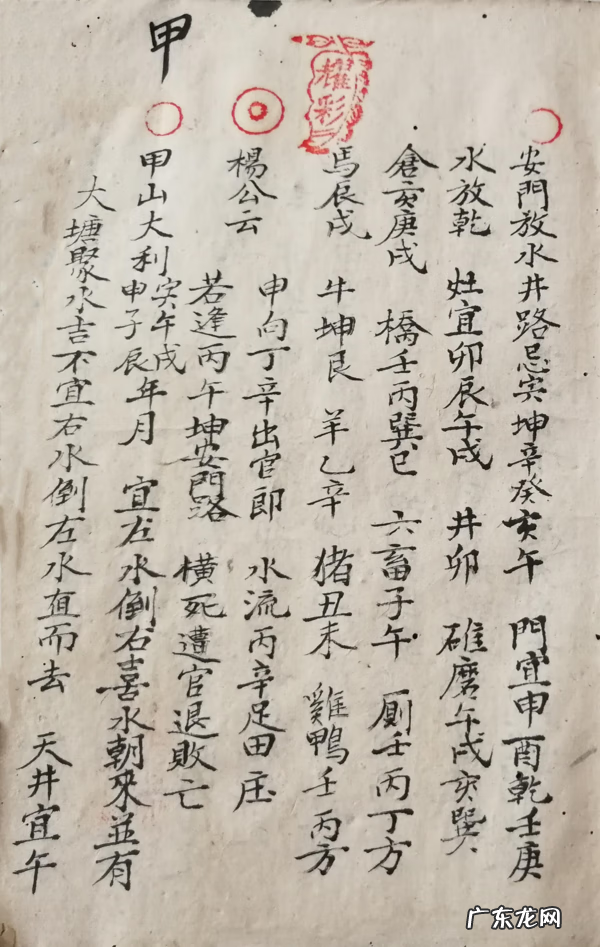 安門放水井路忌寅坤辛癸亥午　門宜申酉乾壬庚
水放乾　灶宜卯辰午戌　井卯　碓磨午戌亥巽
倉亥庚戌　橋壬丙巽巳　六畜子午　厠壬丙丁方
馬辰戌　牛坤艮　羊乙辛　猪丑未　雞鴨壬丙方
楊公云　申向丁辛出官郎　水流丙辛足田庄
若逢丙午坤安門路　橫死遭官退敗亡
甲山大利寅午戌申子辰年月　宜左水倒右喜水朝來並有
大塘聚水吉不宜右水倒左水直而去　天井宜午
甲
耀彩
广东龙网